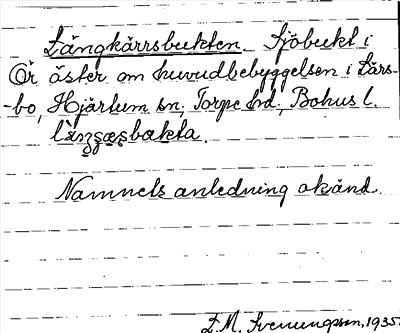 Långkärrsbukten. Sjöbukt i
Ör öster om huvudbebyggelsen i Lars-
-bo, Hjärtum sn, Torpe hd, Bohus l.
Namnets anledning okänd.
E.M. Svenungson, 1935